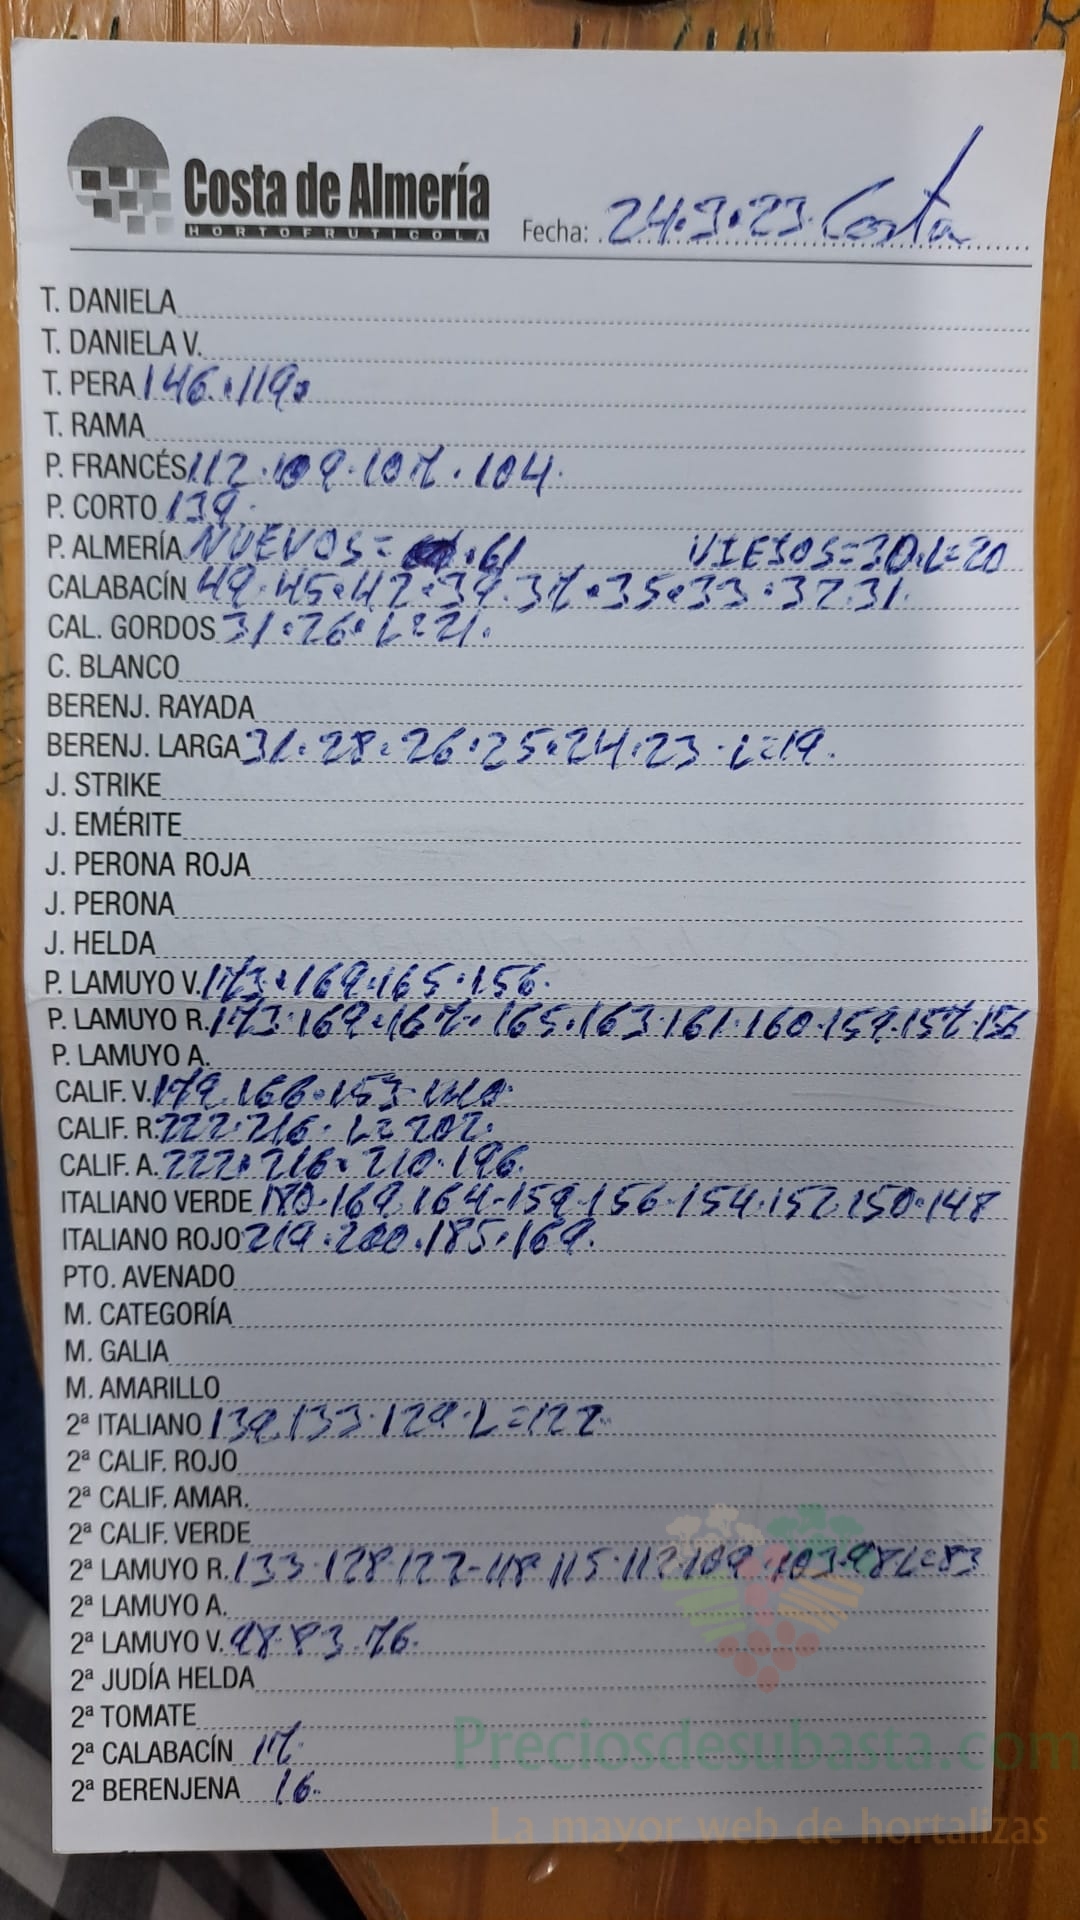 Costa de Almería
HORTOFRUTICOLA
Fecha: 24.3.23. Costa
T. DANIELA
T. DANIELA V.
T. PERA 146.119.
T. RAMA
P. FRANCÉS 112.109.107.104.
P. CORTO 139.
P. ALMERÍA NUEVOS= .61 VIEJOS=30.L=20
CALABACÍN 49.45.42.39.37.35.33.32.31.
CAL. GORDOS 31.26.L=21.
C. BLANCO
BERENJ. RAYADA
BERENJ. LARGA 31.28.26.25.24.23.L=19.
J. STRIKE
J. EMÉRITE
J. PERONA ROJA
J. PERONA
J. HELDA
P. LAMUYO V. 173.169.165.156.
P. LAMUYO R. 173.169.167.165.163.161.160.159.157.156
P. LAMUYO A.
CALIF. V. 179.166.153.140.
CALIF. R. 222.216.L=202.
CALIF. A. 222.216.210.196.
ITALIANO VERDE 180.169.164-159.156.154.152.150.148
ITALIANO ROJO 219.200.185.169.
PTO. AVENADO
M. CATEGORÍA
M. GALIA
M. AMARILLO
2ª ITALIANO 139.133.129.L=122.
2ª CALIF. ROJO
2ª CALIF. AMAR.
2ª CALIF. VERDE
2ª LAMUYO R. 133.128.122-118.115.112.109.103.98.L=83
2ª LAMUYO A.
2ª LAMUYO V. 98.83.76.
2ª JUDÍA HELDA
2ª TOMATE
2ª CALABACÍN 17.
2ª BERENJENA 16.
Preciosdesubasta.com
La mayor web de hortalizas